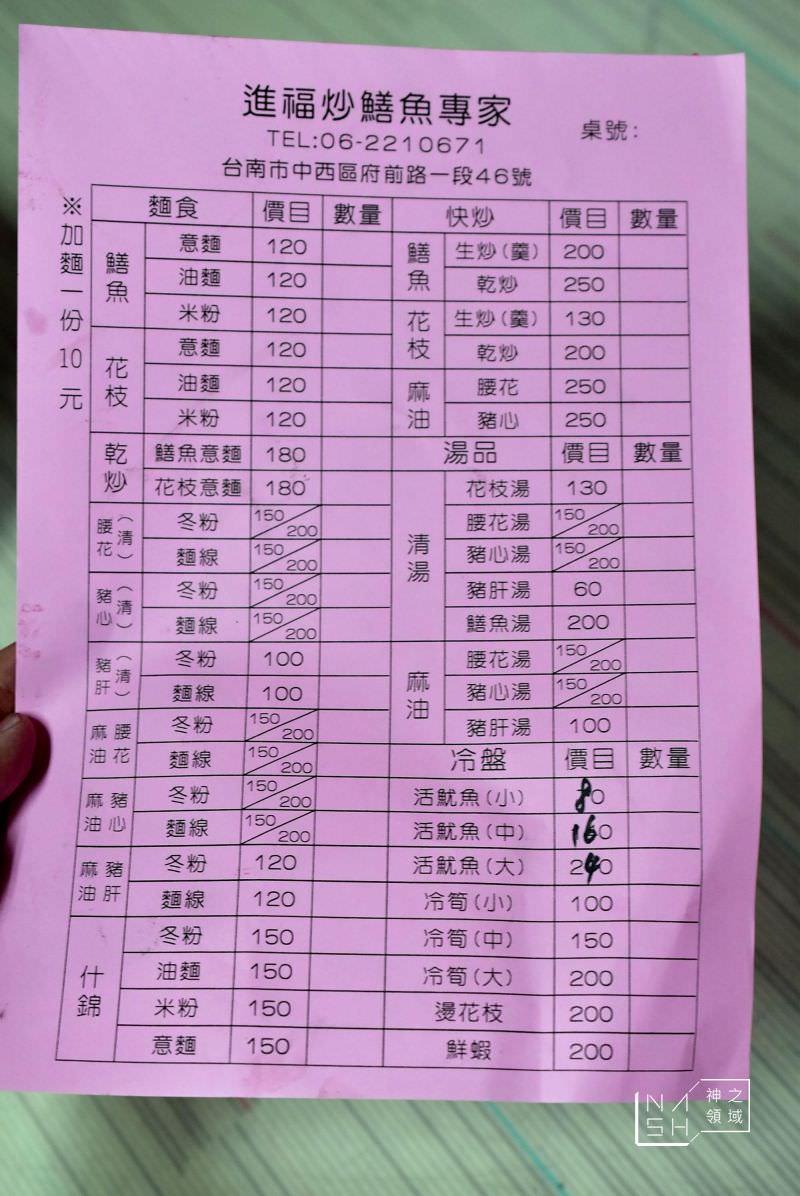 進福炒鱔魚專家
TEL:06-2210671
桌號:
台南市中西區府前路一段46號
※加麵一份10元
麵食 價目 數量
鱔魚 意麵 120
油麵 120
米粉 120
花枝 意麵 120
油麵 120
米粉 120
乾炒 鱔魚意麵 180
花枝意麵 180
腰花(清) 冬粉 150/200
麵線 150/200
豬心(清) 冬粉 150/200
麵線 150/200
豬肝(清) 冬粉 100
麵線 100
麻油腰花 冬粉 150/200
麵線 150/200
麻油豬心 冬粉 150/200
麵線 150/200
麻油豬肝 冬粉 120
麵線 120
什錦 冬粉 150
油麵 150
米粉 150
意麵 150
快炒 價目 數量
鱔魚 生炒(羹) 200
乾炒 250
花枝 生炒(羹) 130
乾炒 200
麻油 腰花 250
豬心 250
湯品 價目 數量
清湯 花枝湯 130
腰花湯 150/200
豬心湯 150/200
豬肝湯 60
鱔魚湯 200
麻油 腰花湯 150/200
豬心湯 150/200
豬肝湯 100
冷盤 價目 數量
活魷魚(小) 80
活魷魚(中) 160
活魷魚(大) 240
冷筍(小) 100
冷筍(中) 150
冷筍(大) 200
燙花枝 200
鮮蝦 200
NASH 神之領域